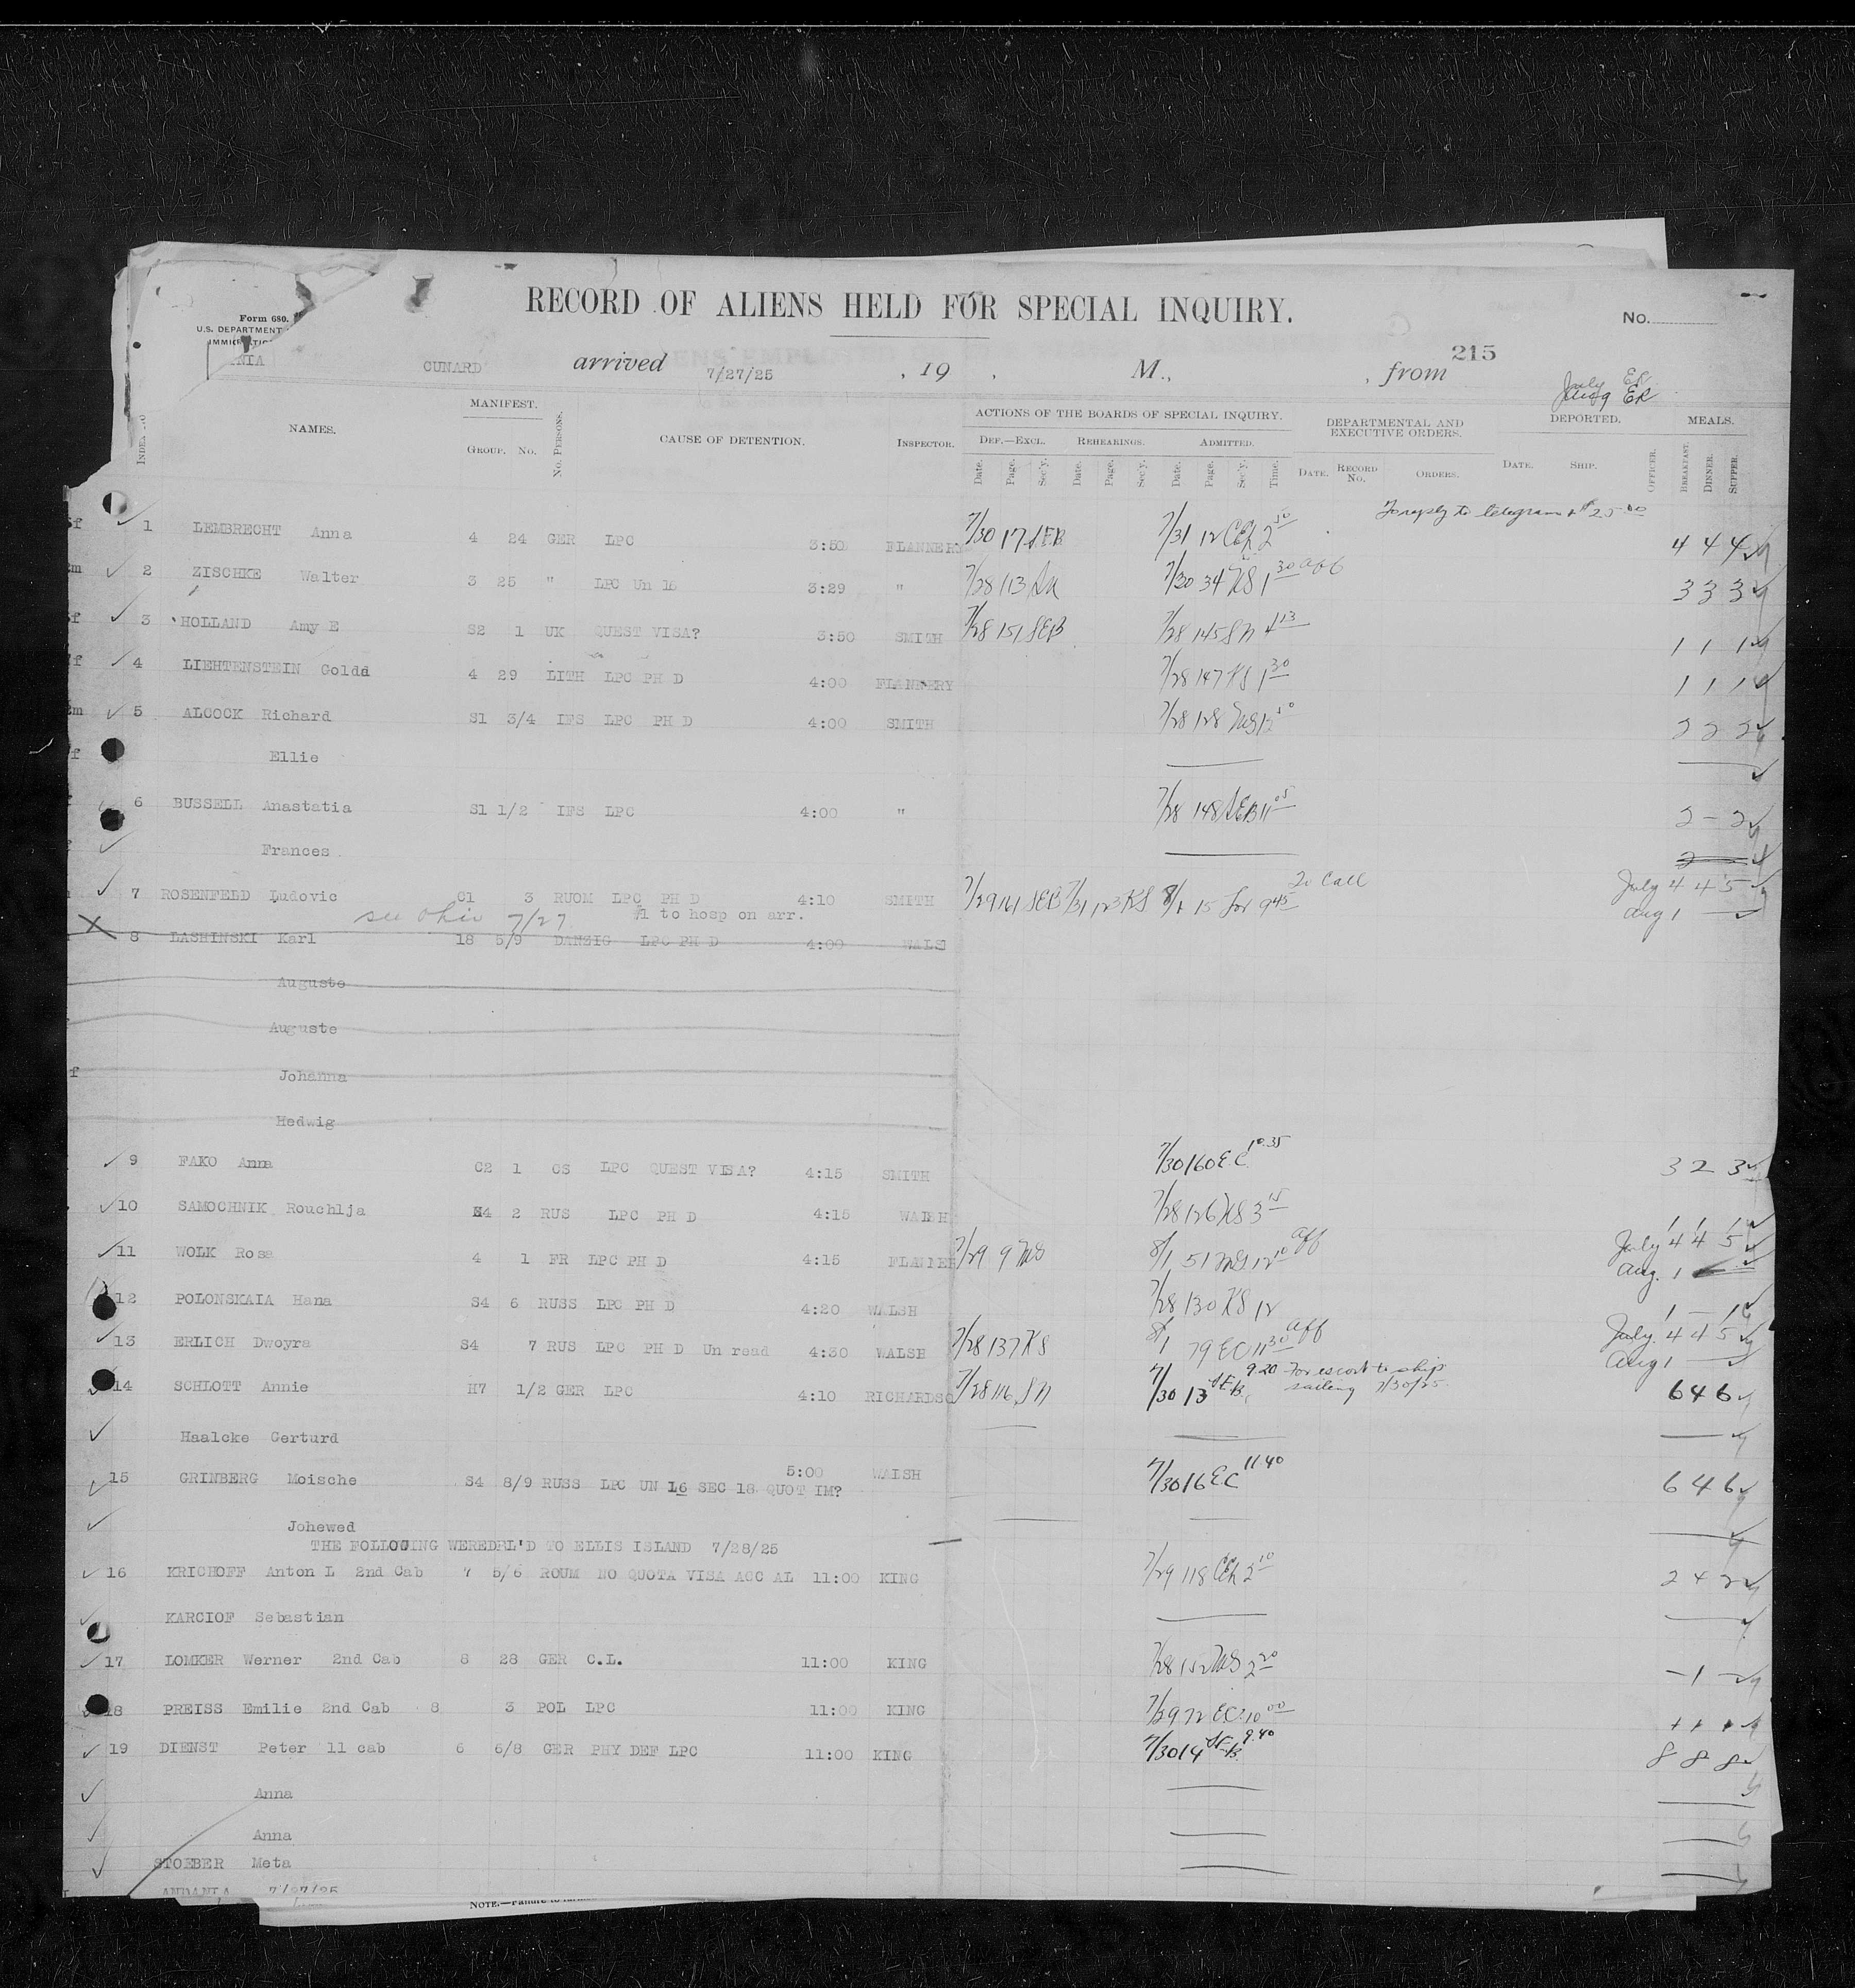 RECORD OF ALIENS HELD FOR SPECIAL INQUIRY.
Form 680.
U.S. DEPARTMENT
No.
215
NIA CUNARD arrived 7/27/25 , 19 , M., , from
July ER
Aug ER
NAMES. MANIFEST. GROUP. No. No. PERSONS. CAUSE OF DETENTION. INSPECTOR. ACTIONS OF THE BOARDS OF SPECIAL INQUIRY. DEF.—EXCL. REHEARINGS. ADMITTED. DEPARTMENTAL AND EXECUTIVE ORDERS. DEPORTED. MEALS.
Date. Page. Sec'y. Date. Page. Sec'y. Date. Page. Sec'y. Time. DATE. RECORD No. ORDERS. DATE. SHIP. OFFICER. BREAKFAST. DINNER. SUPPER.
To reply to telegram + $25.00
1 LEMBRECHT Anna 4 24 GER LPC 3:50 FLANNERY 7/30 17 SEB 7/31 12 CEh 2 50 4 4 4
2 ZISCHKE Walter 3 25 " LPC Un 16 3:29 " 7/28 113 7/30 34 KS 1 30 aff 3 3 3
3 HOLLAND Amy E S2 1 UK QUEST VISA? 3:50 SMITH 7/28 151 SEB 7/28 145 SN 4 13 1 1 1
4 LIEHTENSTEIN Golda 4 29 LITH LPC PH D 4:00 FLANNERY 7/28 147 KS 1 30 1 1 1
5 ALCOCK Richard S1 3/4 IFS LPC PH D 4:00 SMITH 7/28 128 2 2 2
Ellie
6 BUSSELL Anastatia S1 1/2 IFS LPC 4:00 " 7/28 148 SEB 11 05 2 - 2
Frances
7 ROSENFELD Ludovic C1 3 RUOM LPC PH D 4:10 SMITH 7/29 161 SEB 7/31 123 KS 8/1 15 9 45 To Call July 4 4 5
see Ohio 7/27 #1 to hosp on arr. Aug 1
8 LASHINSKI Karl 18 5/9 DANZIG LPC PH D 4:00 WALSH
Auguste
Auguste
Johanna
Hedwig
9 FAKO Anna C2 1 CS LPC QUEST VISA? 4:15 SMITH 7/30 160 E.C. 10.35 3 2 3
10 SAMOCHNIK Rouchlja S4 2 RUS LPC PH D 4:15 WALSH 7/28 126 KS 3 15 1 1 1
11 WOLK Rosa 4 1 FR LPC PH D 4:15 FLANNER 7/29 9 8/1 51 12 10 aff July 4 4 5
Aug. 1
12 POLONSKAIA Hana S4 6 RUSS LPC PH D 4:20 WALSH 7/28 130 KS 12 1 - 1
13 ERLICH Dwoyra S4 7 RUS LPC PH D Un read 4:30 WALSH 7/28 137 KS 8/1 79 EC 11 30 aff July 4 4 5
Aug 1
14 SCHLOTT Annie H7 1/2 GER LPC 4:10 RICHARDSO 7/28 116 SN 7/30 13 SEB. 9.20 For escort to ship sailing 7/30/25 6 4 6
Haalcke Gerturd
15 GRINBERG Moische S4 8/9 RUSS LPC UN 16 SEC 18 QUOT IM? 5:00 WALSH 7/30 16 EC 11 40 6 4 6
Johewed
THE FOLLOWING WEREDRL'D TO ELLIS ISLAND 7/28/25
16 KRICHOFF Anton L 2nd Cab 7 5/6 ROUM NO QUOTA VISA ACC AL 11:00 KING 7/29 118 CEh 2 10 2 4 2
KARCIOF Sebastian
17 LOMKER Werner 2nd Cab 8 28 GER C.L. 11:00 KING 7/28 152 2 20 - 1 -
18 PREISS Emilie 2nd Cab 8 3 POL LPC 11:00 KING 7/29 72 E.C. 10 00 1 1 1
19 DIENST Peter 11 cab 6 6/8 GER PHY DEF LPC 11:00 KING 7/30 14 SEB. 9.40 8 8 8
Anna
Anna
STOEBER Meta
ANDANIA 7/27/25